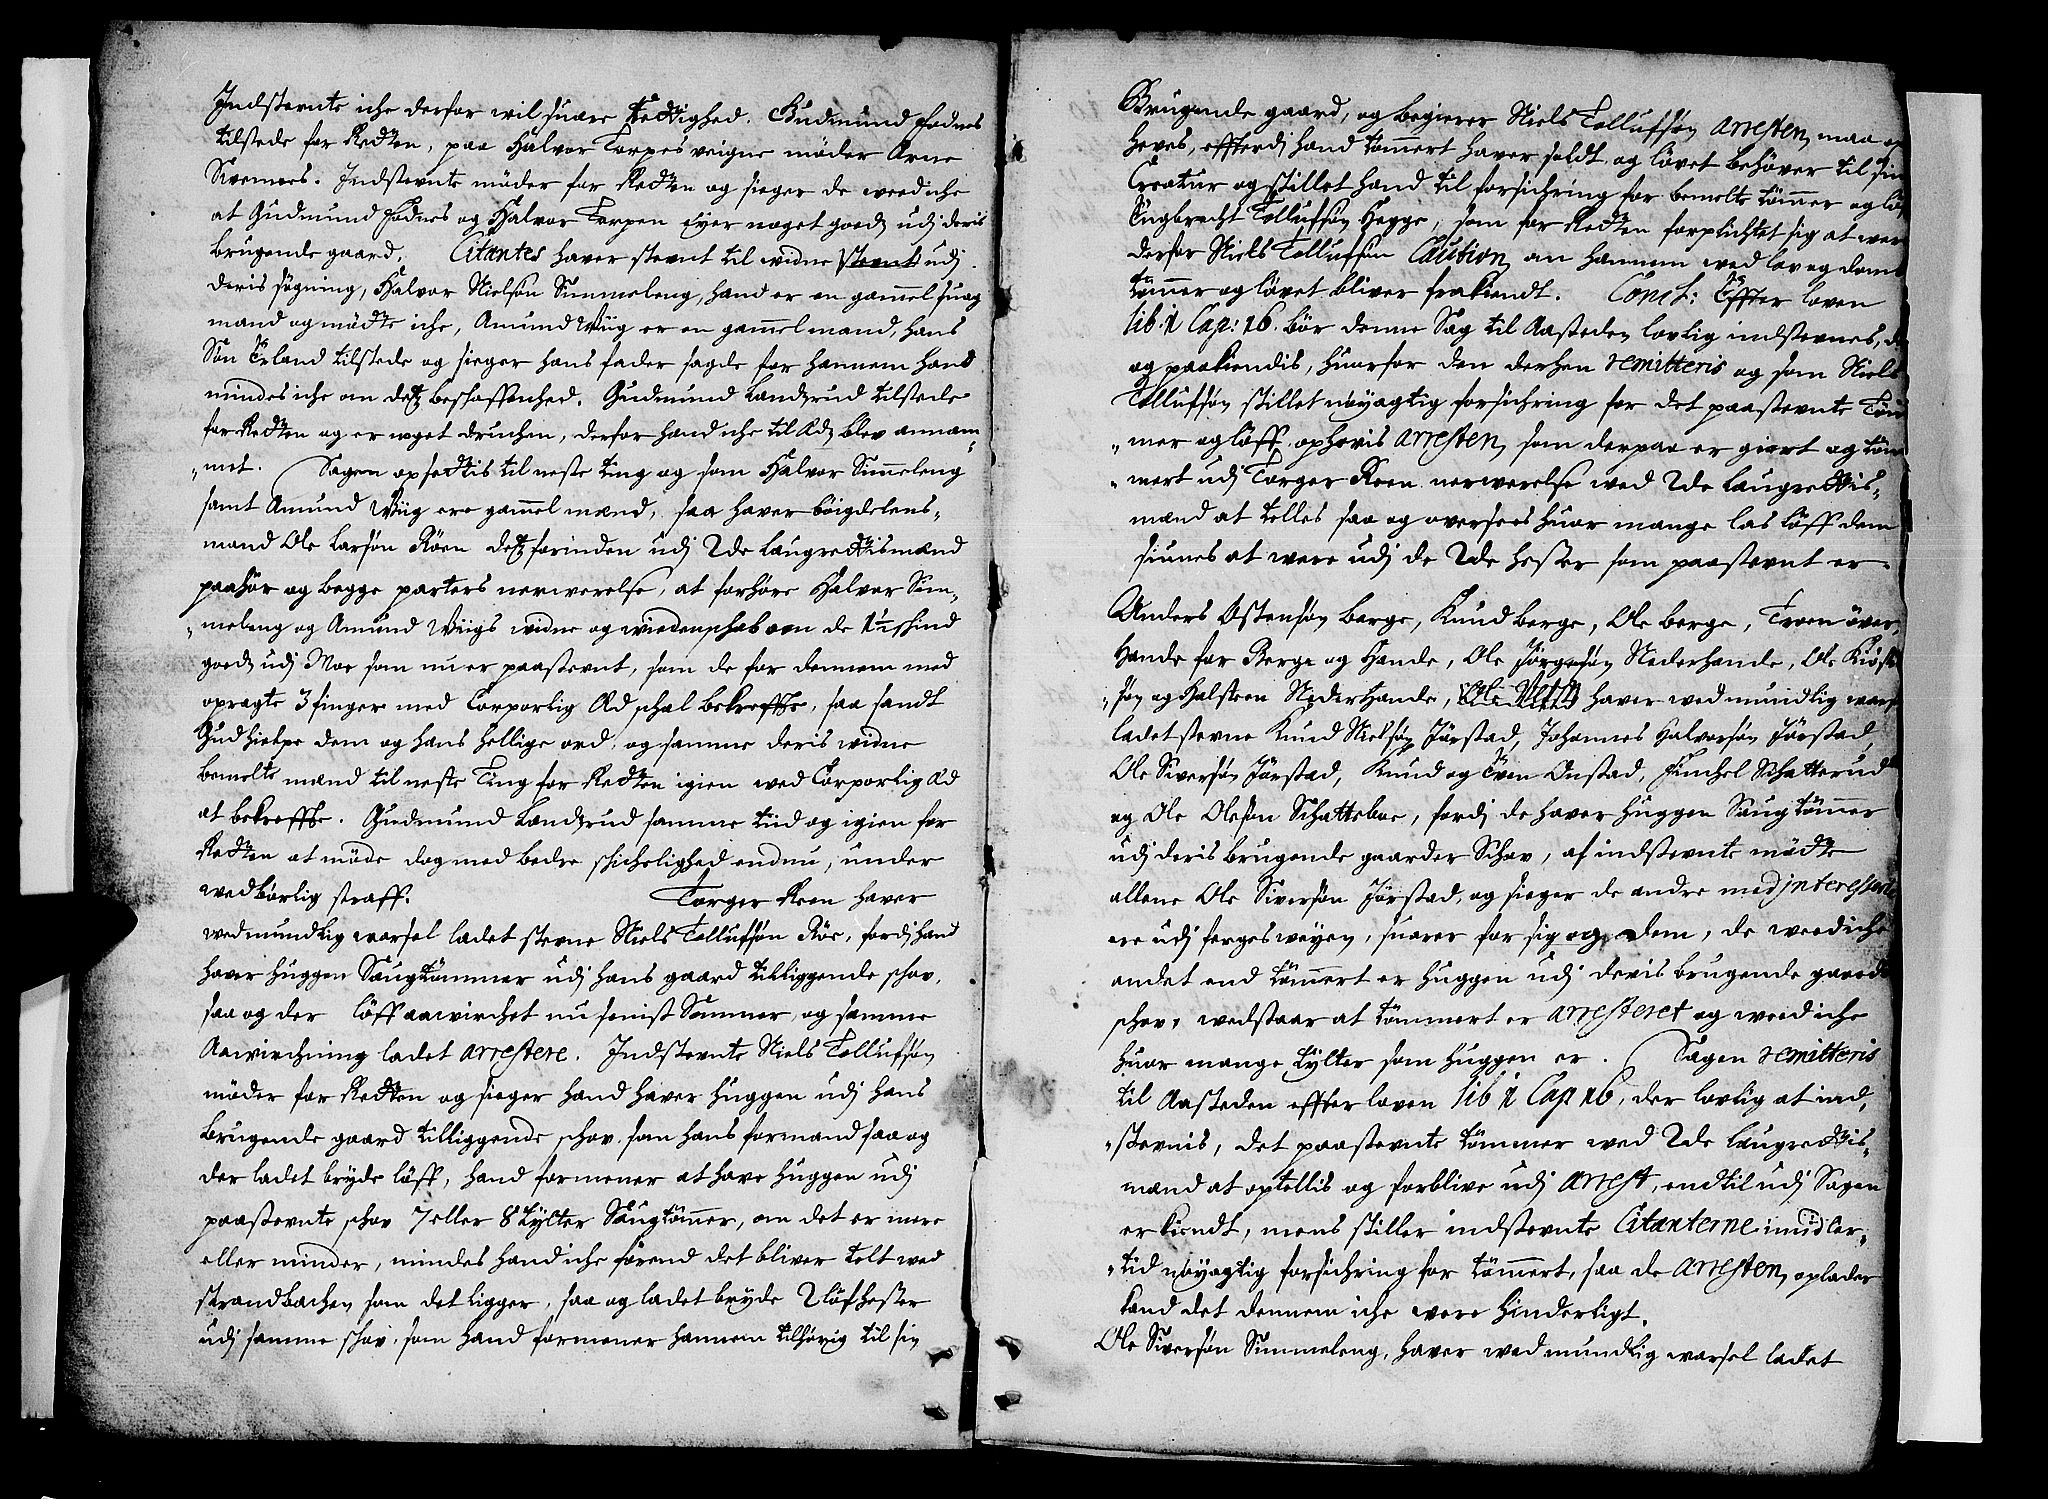 Indstevnte iche derfor wil suare Rettighed. Gudmund Fodnes
tilstede for Retten, paa Halvor Torpes veigne möder Arne
Sivernes. Indstevnte möder for Retten og sieger de weed iche
at Gudmund Fodnes og Halvor Torpen Eyer noget goeds udj deris
brugende gaard. Citantes haver stevnt til widne udj
deris søgning, Halvor Nielsøn Simmeleng, hand er en gammel suag
mand og mødte iche, Amund Wiig er en gamel mand, hans
Søn Erland tilstede og sieger hans fader sagde for hannem hand
mindes iche om dets beskaffenhed. Gudmund Landsrud tilstede
for Retten og er noget druchen, derfor hand iche til Æd blev annam¬
met. Sagen opsettis til neste ting og som Halvor Simeleng
samt Amund Wiig ere gammel mænd, saa haver böigdelens¬
mand Ole Larsøn Röen dets forinden udj 2de Laugrettismænd
paahör og begge parters nerwerelse, at forhöre Halvor Sim¬
meleng og Amund Wiigs widne og wiedenskab om de 1½ skind
goeds udj Moe som nu er paastevnt, som de for dennem med
opragte 3 finger med Corporlig Æd schal bekreffte, saa sandt
Gud hielpe dem og hans hellige ord, og samme deris widne
bemelte mænd til neste Ting for Retten igien wed Corporlig Æd
at bekreffte. Gudmund Landsrud samme tiid og igien for
Retten at möde dog med bedre schichelighed endnu, under
wedbörlig straff. Torger Reen haver
wed mundlig warsel ladet stevne Niels Tollufsøn Röe, fordj hand
haver huggen Saugtömmer udj hans gaard tilliggende schov,
saa og der löff aawirchet nu senist Sommer, og samme
Aawirchning ladet arrestere. Indstevnte Niels Tollufsøn
möder for Retten og sieger hand haver huggen udj hans
brugende gaard tilliggende schov som hans formand saa og
der ladet bryde löff, hand formener at have huggen udj
paastevnte schov 7 eller 8 Tylter Saugtömer, om det er mere
eller minder, mindes hand iche förend det bliver telt wed
strandbachen som det ligger, saa og ladet bryde 2 löfhester
udj samme schov, som hand formener hannem tilhörig til sin
Brugende gaard, og begierer Niels Tollufsøn arresten maa op
heves, effterdj hand tömert haver soldt og lövet behöver til sin
Creatur og stillet hand til forsichring for bemelte tömer og löf
Engbrecht Tollufsøn Hegge, som for Retten forplichtet sig at were
derfor Niels Tollufsøn Caution om hannem wed lov og domb
tömer og lövet bliver frakiendt. Conct: Effter loven
lib 1 Cap: 16. bör denne Sag til Aasteden lovlig indstevnes, der
og paakiendis, huorfor den derhen remitteris og som Niels
Tollufsøn stillet nöyagtig forsichring for det paastevnte Töm
mer og löff ophevis arresten, som derpaa er giort og töm
mert udj Torger Reen nerwerelse wed 2de Laugrettis¬
mænd at telles saa og oversees huor mange las löff dem
siunes at were udj de 2de hester som paastevnt er.
Anders Ostensøn Berge, Knud Berge, Ole Berge, Troen över
Hande for Berge og Hande, Ole Jörgensøn Nederhande, Ole Kiöst
søn og Halsteen Nederhande, haver wed mundlig warsel
ladet stevne Knud Nielsøn Jörstad, Johannes Halvorsøn Jörstad
Ole Siversøn Jörstad, Knud og Even Onstad, Finchel Schatterud
og Ole Olesøn Schatteboe, fordj de haver huggen Saugtömmer
udj deris brugende gaarder Schov, af indstevnte mødte
allene Ole Siversøn Jörstad, og sieger de andre medinteressente
ere udj ferges weyen, suarer for sig og dem, de weed iche
andet end tömert er huggen udj deris brugende gaarde
schov, wedstaar at tömmert er arresteret og weed iche
huor mange tylter som huggen er. Sagen remitteris
til Aasteden effter loven lib 1 Cap 16, der lovlig at ind¬
stevnis, det paastevnte tömmer wed 2de Laugrettis¬
mænd at optellis og forblive udj arrest, indtil udj Sagen
er kiendt, mens stiller indstevnte Citanterne imidler¬
tid nöyagtig forsichring for tömert, saa de arresten oplader
kand det dennem iche were hinderligt.
Ole Siversøn Simmeleng, haver wed mundlig warsel ladet